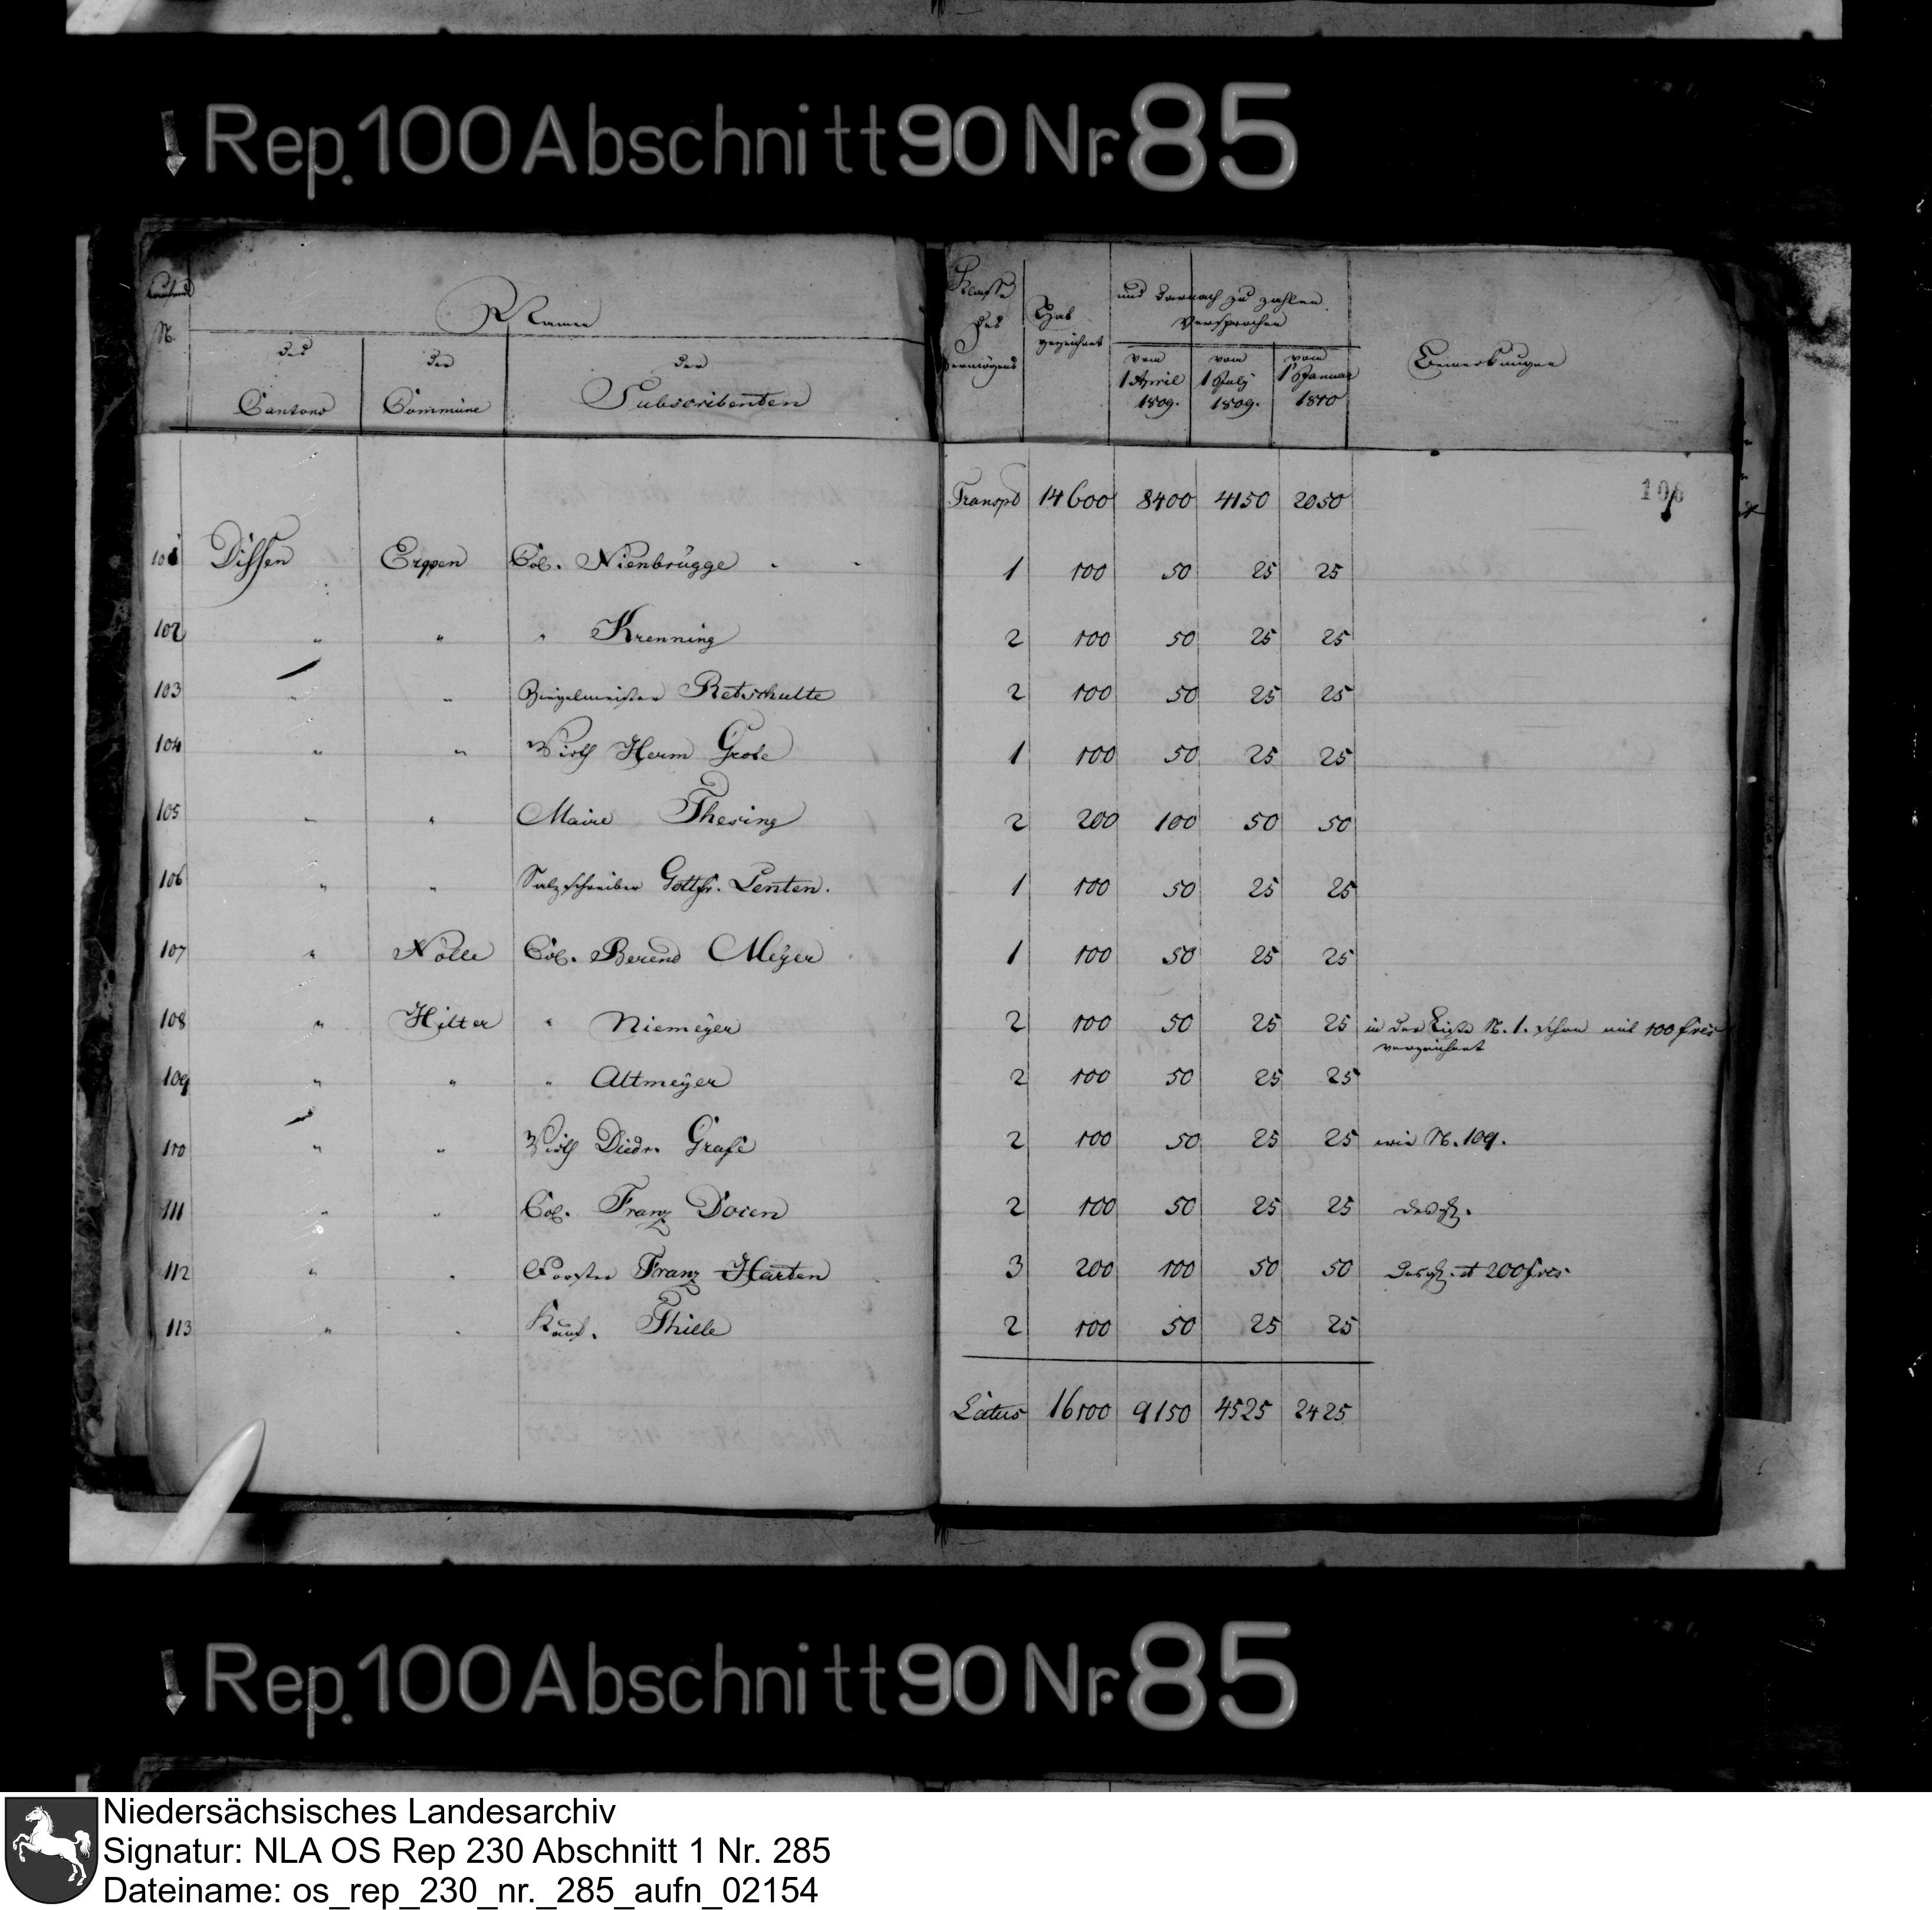 Rep. 100 Abschnitt 90 Nr. 85
Laufende
N.
Namen
des
Cantons
der
Commüne
der
Subscribenten
Klasse
des
Vermögens
Hat
gezeichnet
und darnach zu zahlen
versprochen
vom
1 April
1809.
vom
1 July
1809.
vom
1 Januar
1810
Bemerkungen
Transpt 14600 8400 4150 2050
106
101 Dissen Erpen Col. Nienbrügge 1 100 50 25 25
102 " " " Krenning 2 100 50 25 25
103 " " Ziegelmeister Retschulte 2 100 50 25 25
104 " " Wirth Herm Grote 1 100 50 25 25
105 " " Maire Thesing 2 200 100 50 50
106 " " Salzschreiber Gottfr. Lenten. 1 100 50 25 25
107 " Nolle Col. Berend Meÿer 1 100 50 25 25
108 " Hilter " Niemeÿer 2 100 50 25 25 in der Liste N. 1. schon mit 100 frcs
verzeichnet
109 " " " Altmeÿer 2 100 50 25 25
110 " " Wirth Diedr. Grafe 2 100 50 25 25 wie N. 109.
111 " " Col. Franz Doren 2 100 50 25 25 desgl.
112 " " Forster Franz Harten 3 200 100 50 50 desgl. et 200 frcs.
113 " " Kauf. Thiele 2 100 50 25 25
Latus 16100 9150 4525 2425
Rep. 100 Abschnitt 90 Nr. 85
Niedersächsisches Landesarchiv
Signatur: NLA OS Rep 230 Abschnitt 1 Nr. 285
Dateiname: os_rep_230_nr._285_aufn_02154